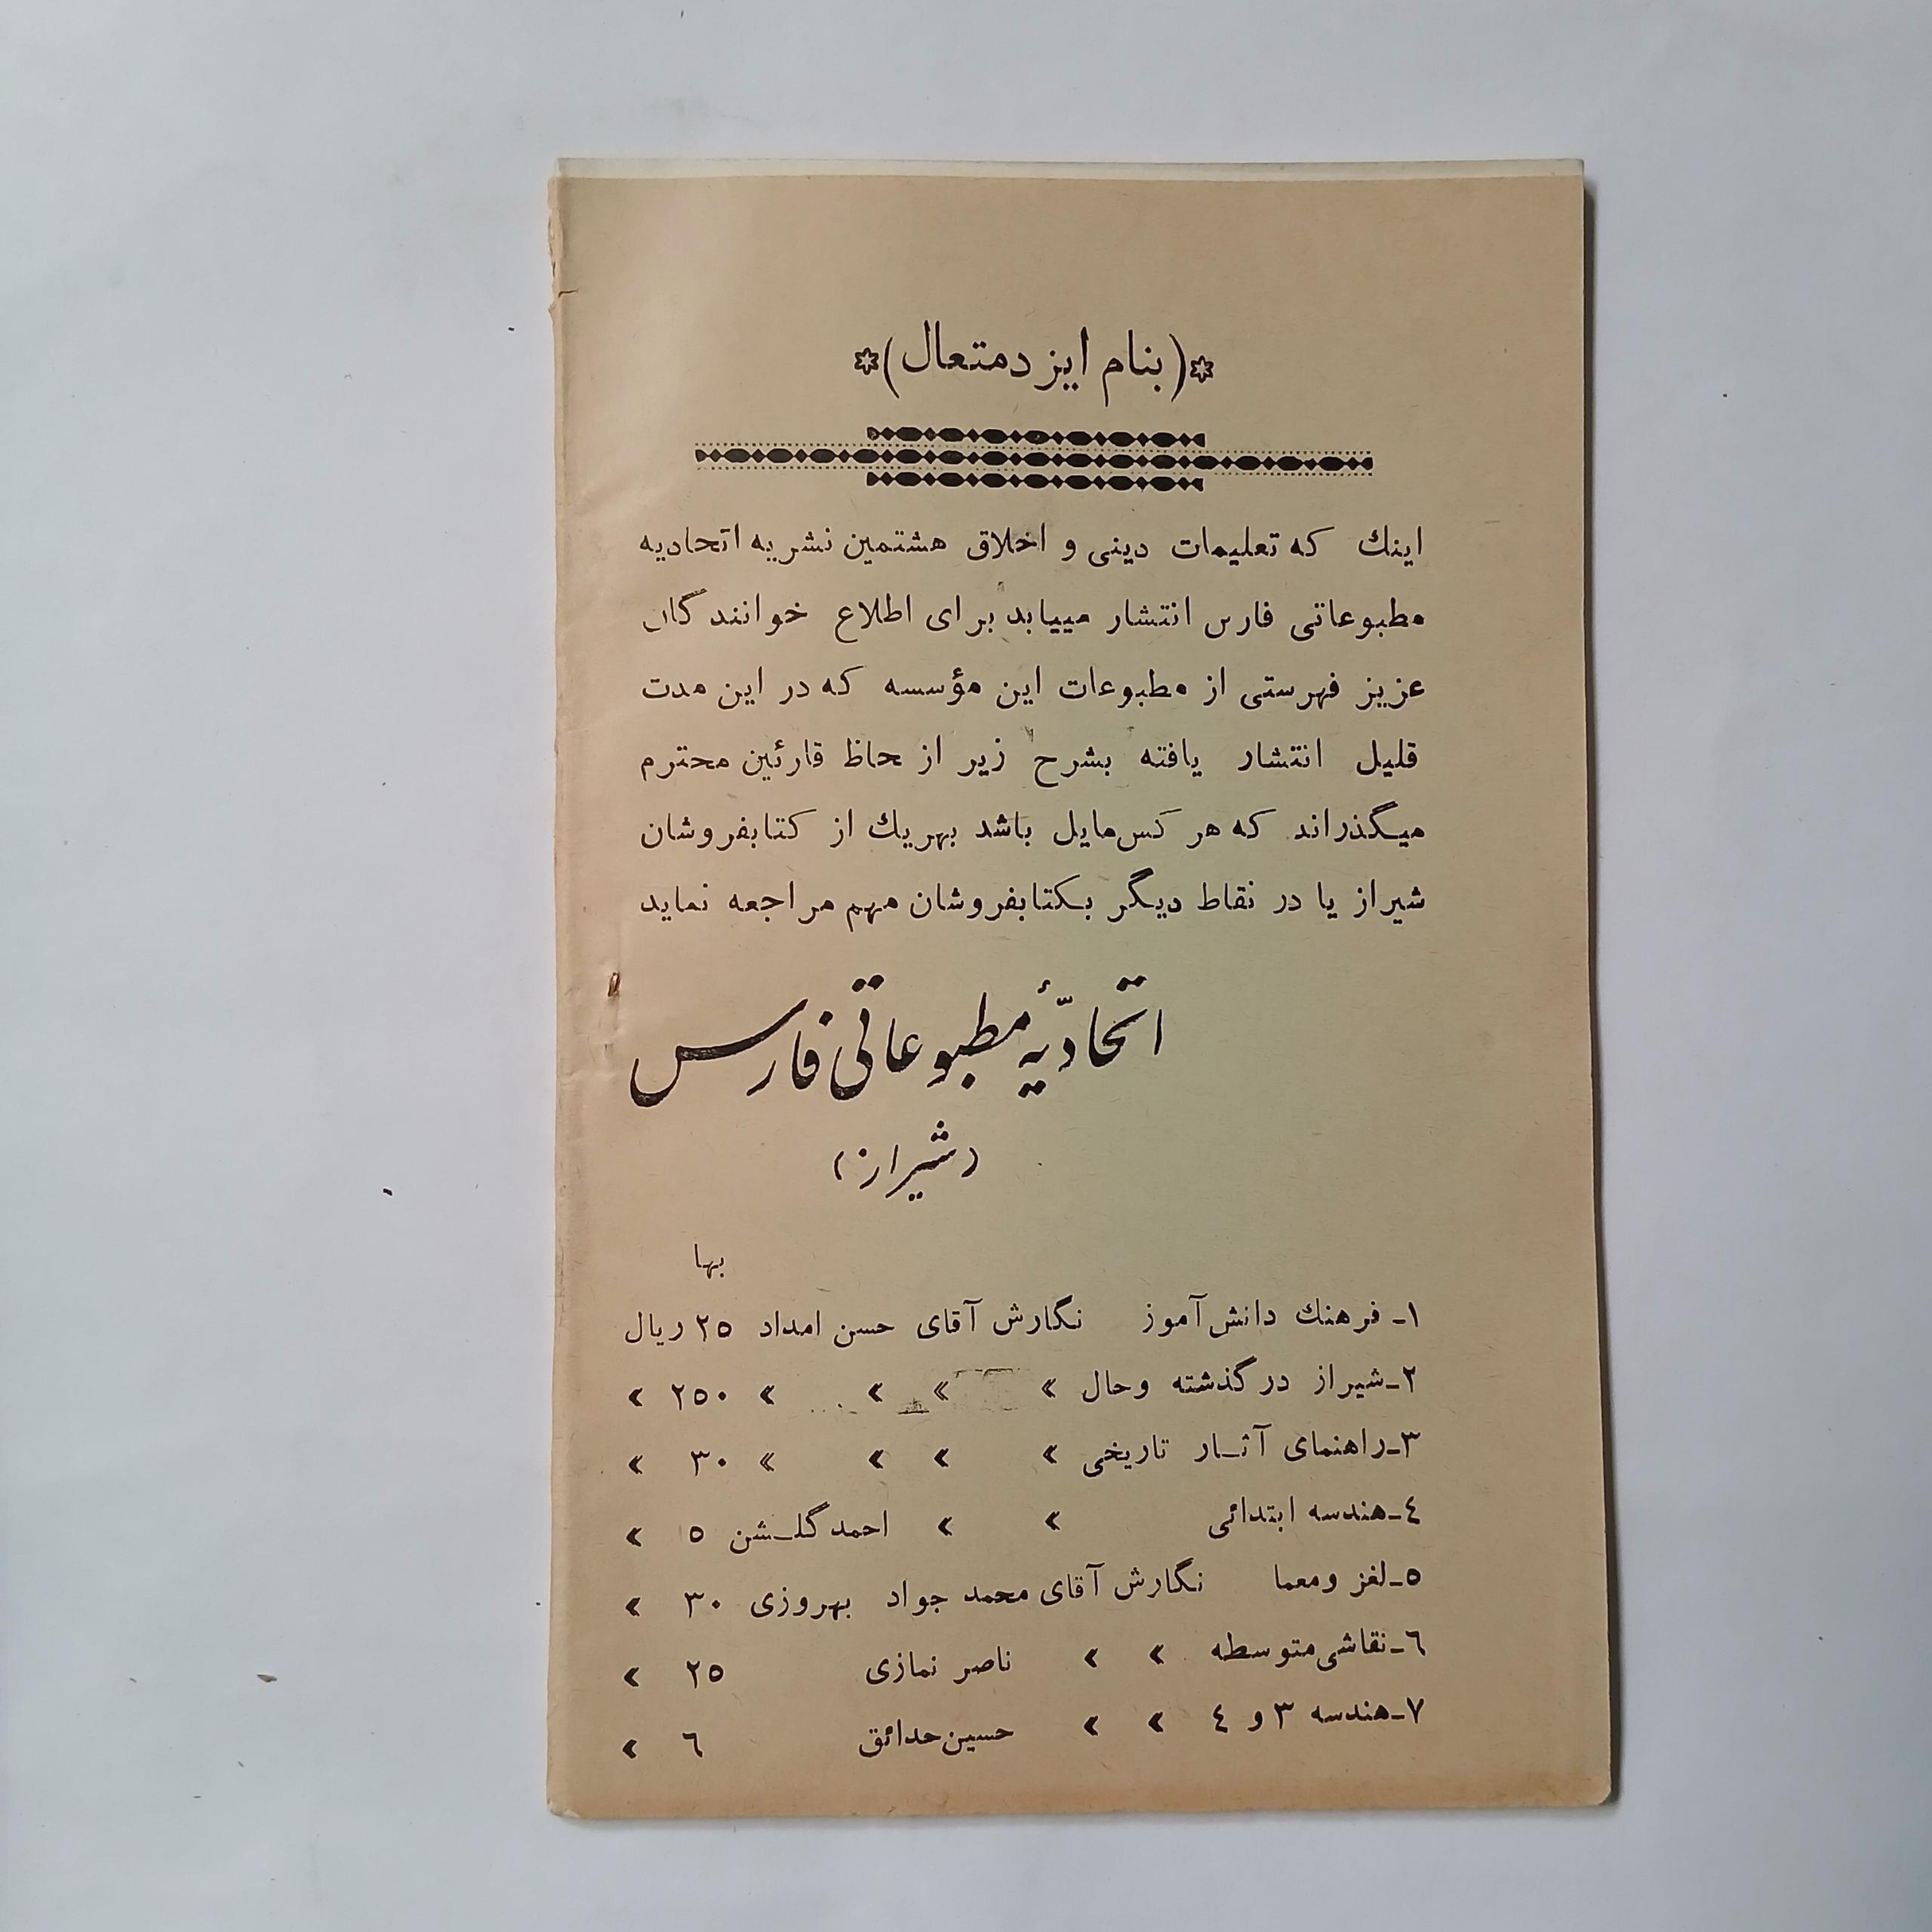 *(بنام ایزدمتعال)*
اینك که تعلیمات دینی و اخلاق هشتمین نشریه اتحادیه
مطبوعاتی فارس انتشار مییابد برای اطلاع خوانندگان
عزیز فهرستی از مطبوعات این مؤسسه که در این مدت
قلیل انتشار یافته بشرح زیر از حاظ قارئین محترم
میگذراند که هر کس مایل باشد بهریك از کتابفروشان
شیراز یا در نقاط دیگر بکتابفروشان مهم مراجعه نماید
اتحادیّهٔ مطبوعاتی فارس
(شیراز)
بها
۱ـ فرهنك دانش آموز نگارش آقای حسن امداد ۲۵ ریال
۲ـ شیراز در گذشته وحال » » » » ۲۵۰ »
۳ـ راهنمای آثـار تاریخی » » » » ۳۰ »
٤ـ هندسه ابتدائی » » احمد گلـشن ۵ »
۵ـ لغز ومعما نگارش آقای محمد جواد بهروزی ۳۰ »
٦ـ نقاشی متوسطه » » ناصر نمازی ۲۵ »
۷ـ هندسه ۳ و ٤ » » حسین حدائق ٦ »